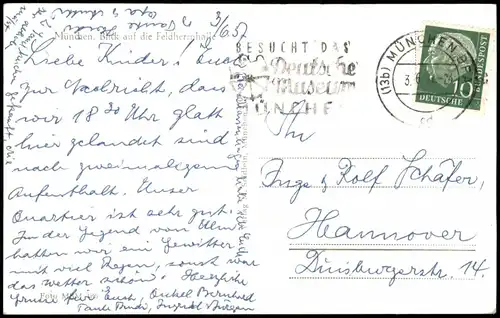 3/6.57.
München. Blick auf die Feldherrnhalle
Liebe Kinder! Euch
zur Nachricht, dass
wir 18 30 Uhr glatt
hier gelandet sind
nach zweimaligem
Aufenthalt. Unser
Quartier ist sehr gut.
In der Gegend von Ulm
hatten wir ein Gewitter
mit viel Regen, sonst war
das Wetter schön! Herzliche
Grüsse für Euch, Onkel Bernhard
Tante Trudi, Ingrid Jürgen
Foto
BESUCHT DAS
Deutsche
Museum
MÜNCHEN
(13b) MÜNCHEN
DEUTSCHE
BUNDESPOST
10
An
Inge & Rolf Schäfer,
Hannover
Duisburgerstr. 14.